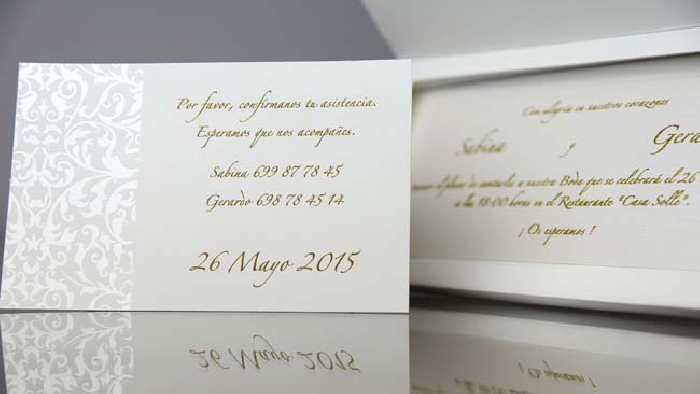 Por favor, confirmanos tu asistencia.
Esperamos que nos acompañes.
Sabina 699 87 78 45
Gerardo 698 78 45 14
26 Mayo 2015
Con alegría en nuestros corazones
Sabina y Gera
a nuestra Boda que se celebrará el 26
a las 18:00 horas en el Restaurante "Casa Solle".
¡ Os esperamos !